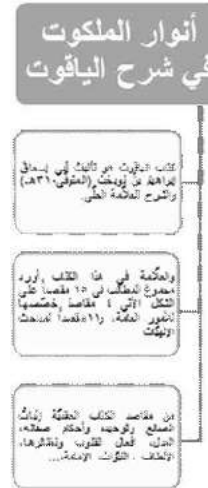 أنوار الملكوت
في شرح الياقوت
كتاب الياقوت هو تأليف أبي إسحاق
إبراهيم بن نوبخت (المتوفى ٣١٠هـ)
والشرح للعلامة الحلي.
والعلامة في هذا الكتاب أورد
مجموع المطالب في ١٥ مقصدا على
الشكل الآتي ٤ مقاصد خصصها
للأمور العامة، و١١ مقصدا لمباحث
الإلهيات
من مقاصد الكتاب العقدية إثبات
الصانع وتوحيده وأحكام صفاته،
العدل، أفعال القلوب ونظائرها،
الألطاف، النبوات، الإمامة،...